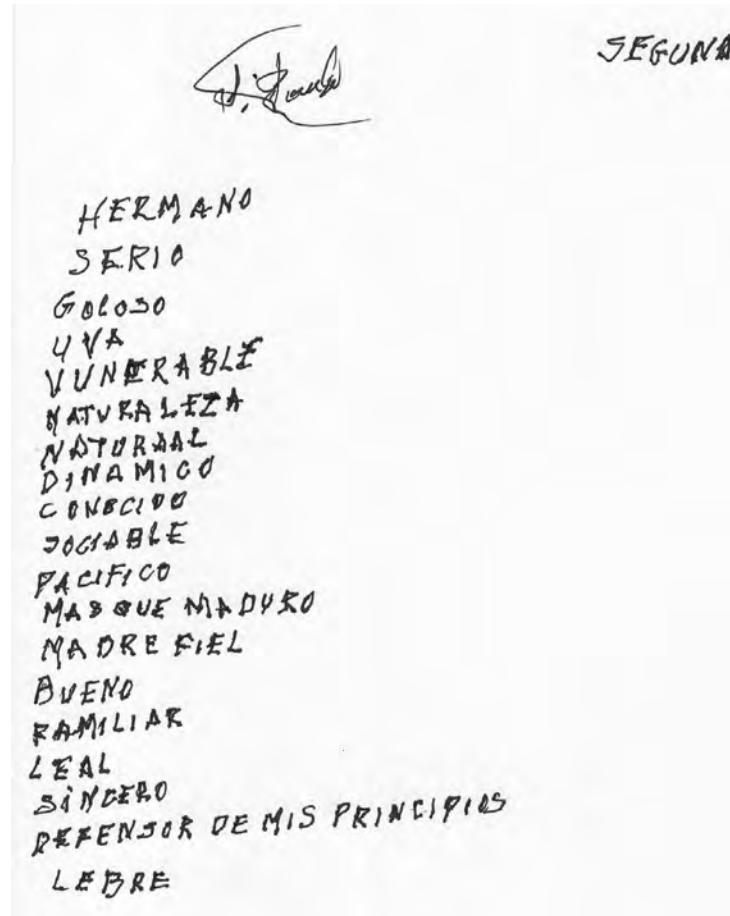 SEGUNA
HERMANO
SERIO
GOLOSO
UVA
VUNERABLE
NATURALEZA
NATURAAL
DINAMICO
CONOCIDO
SOCIABLE
PACIFICO
MAS QUE MADURO
MADRE FIEL
BUENO
FAMILIAR
LEAL
SINCERO
DEFENSOR DE MIS PRINCIPIOS
LEBRE